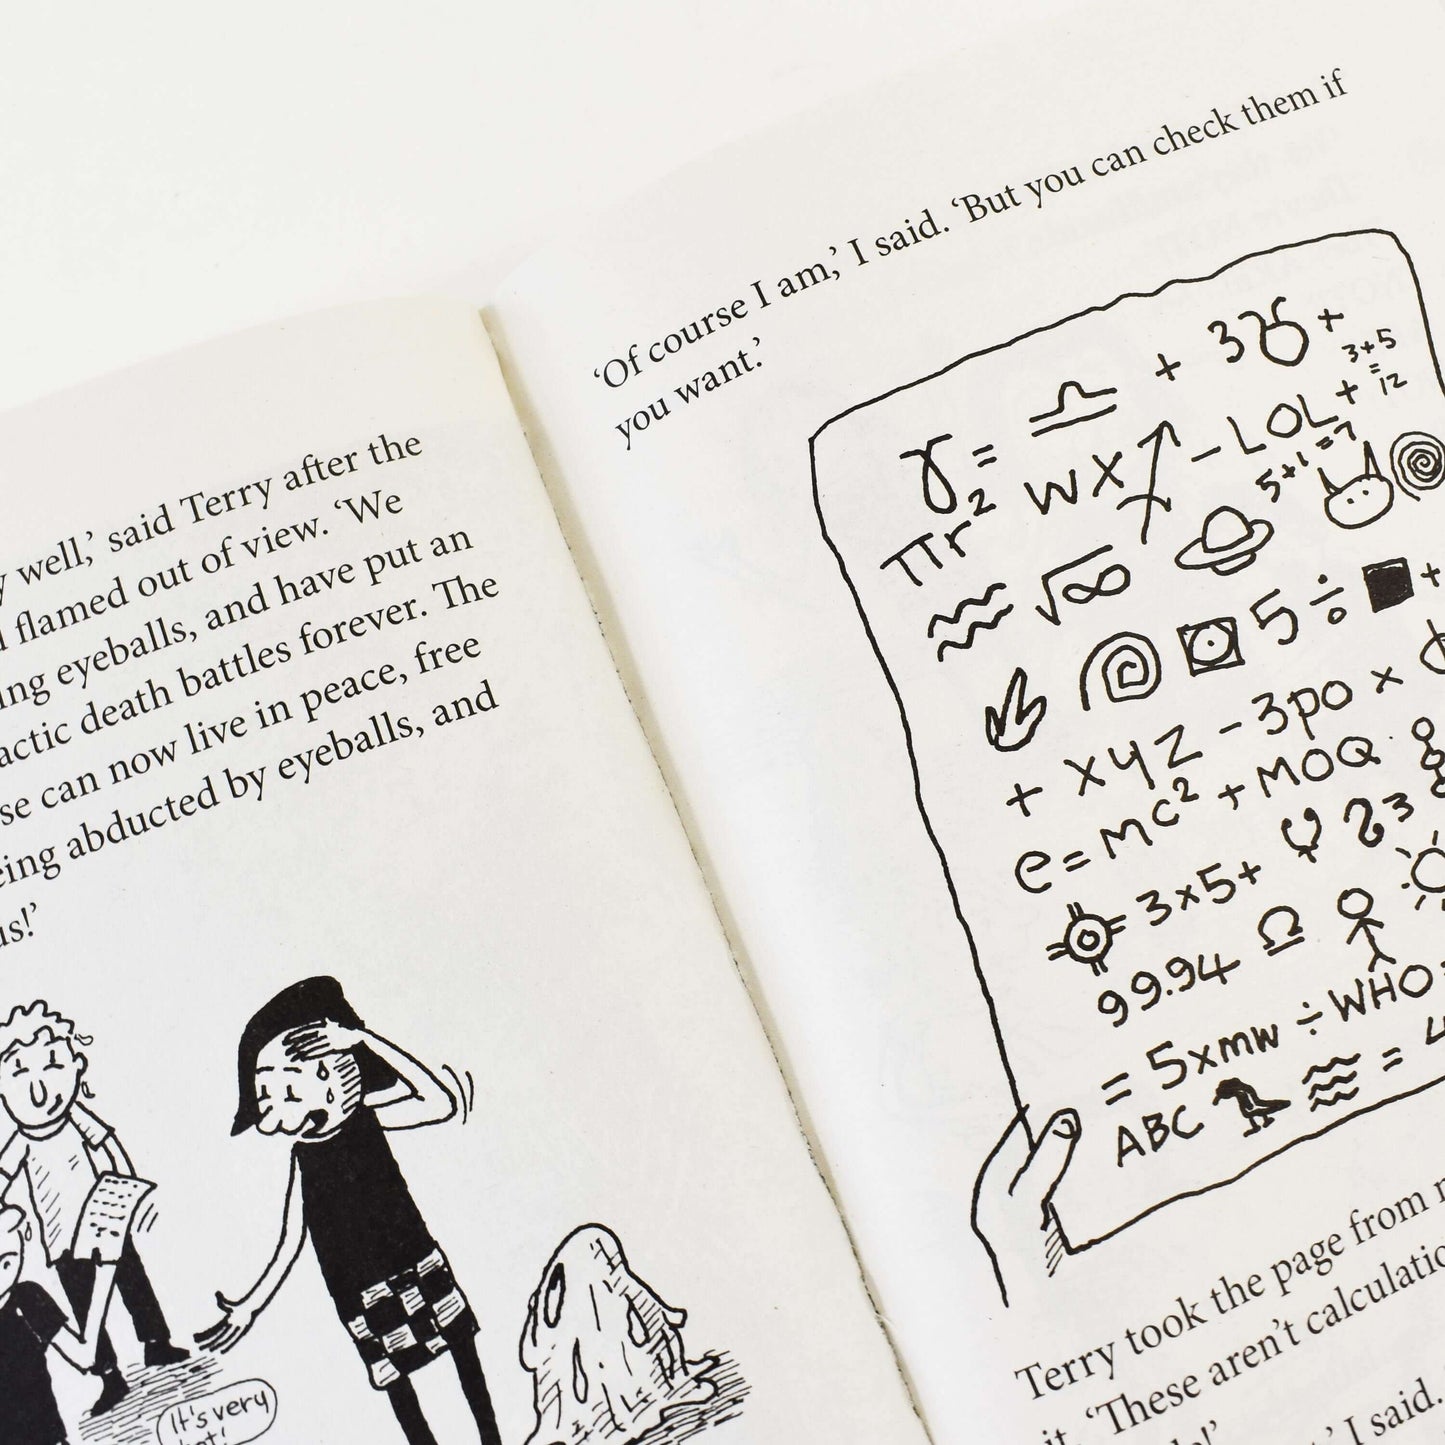 well,’ said Terry after the
flamed out of view. ‘We
eyeballs, and have put an
death battles forever. The
can now live in peace, free
abducted by eyeballs, and
us!’
It's very
‘Of course I am,’ I said. ‘But you can check them if
you want.’
+ 3 +
3+5
=
12
= WX - LOL +
πr2 5+1=7
√∞
5 ÷ +
+ XYZ - 3PO ×
e=mc² + MOQ
3×5+ 3
99.94
= 5×mw ÷ WHO
ABC = 4
Terry took the page from
it. ‘These aren’t
I said.